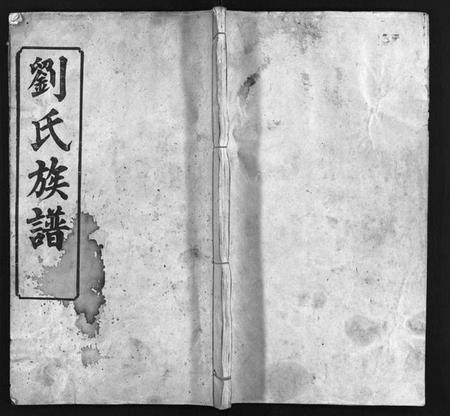 劉氏族譜
137